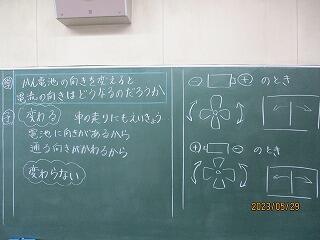 問 かん電池の向きを変えると
電流の向きはどうなるのだろうか
予 変わる 車の走りにもえいきょう
電池に向きがあるから
通る向きがかわるから
変わらない
⊖ ⊕ のとき
⊕ ⊖ のとき
2023/05/29